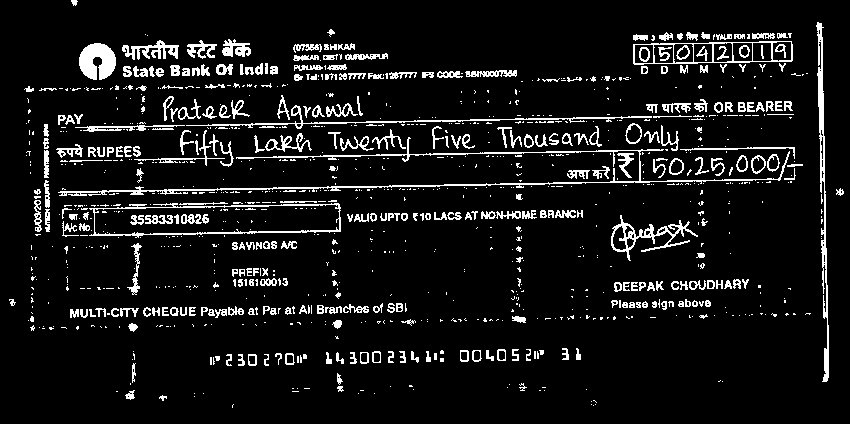 भारतीय स्टेट बैंक
State Bank Of India
(07556) SHIKAR
SHIKAR, DIST: GURDASPUR
PUNJAB-143505
Br Tel:1871267777 Fax:1267777 IFS CODE: SBIN0007556
VALID FOR 3 MONTHS ONLY
05042019
D D M M Y Y Y Y
PAY Prateek Agrawal या धारक को OR BEARER
रुपये RUPEES Fifty Lakh Twenty Five Thousand Only
अदा करें ₹ 50,25,000/-
16/03/2016
खा. सं.
A/c No. 35583310826
VALID UPTO ₹ 10 LACS AT NON-HOME BRANCH
SAVINGS A/C
PREFIX :
1516100013
Deepak
DEEPAK CHOUDHARY
Please sign above
MULTI-CITY CHEQUE Payable at Par at All Branches of SBI
⑈230270⑈ 143002341⑆ 004052⑈ 31